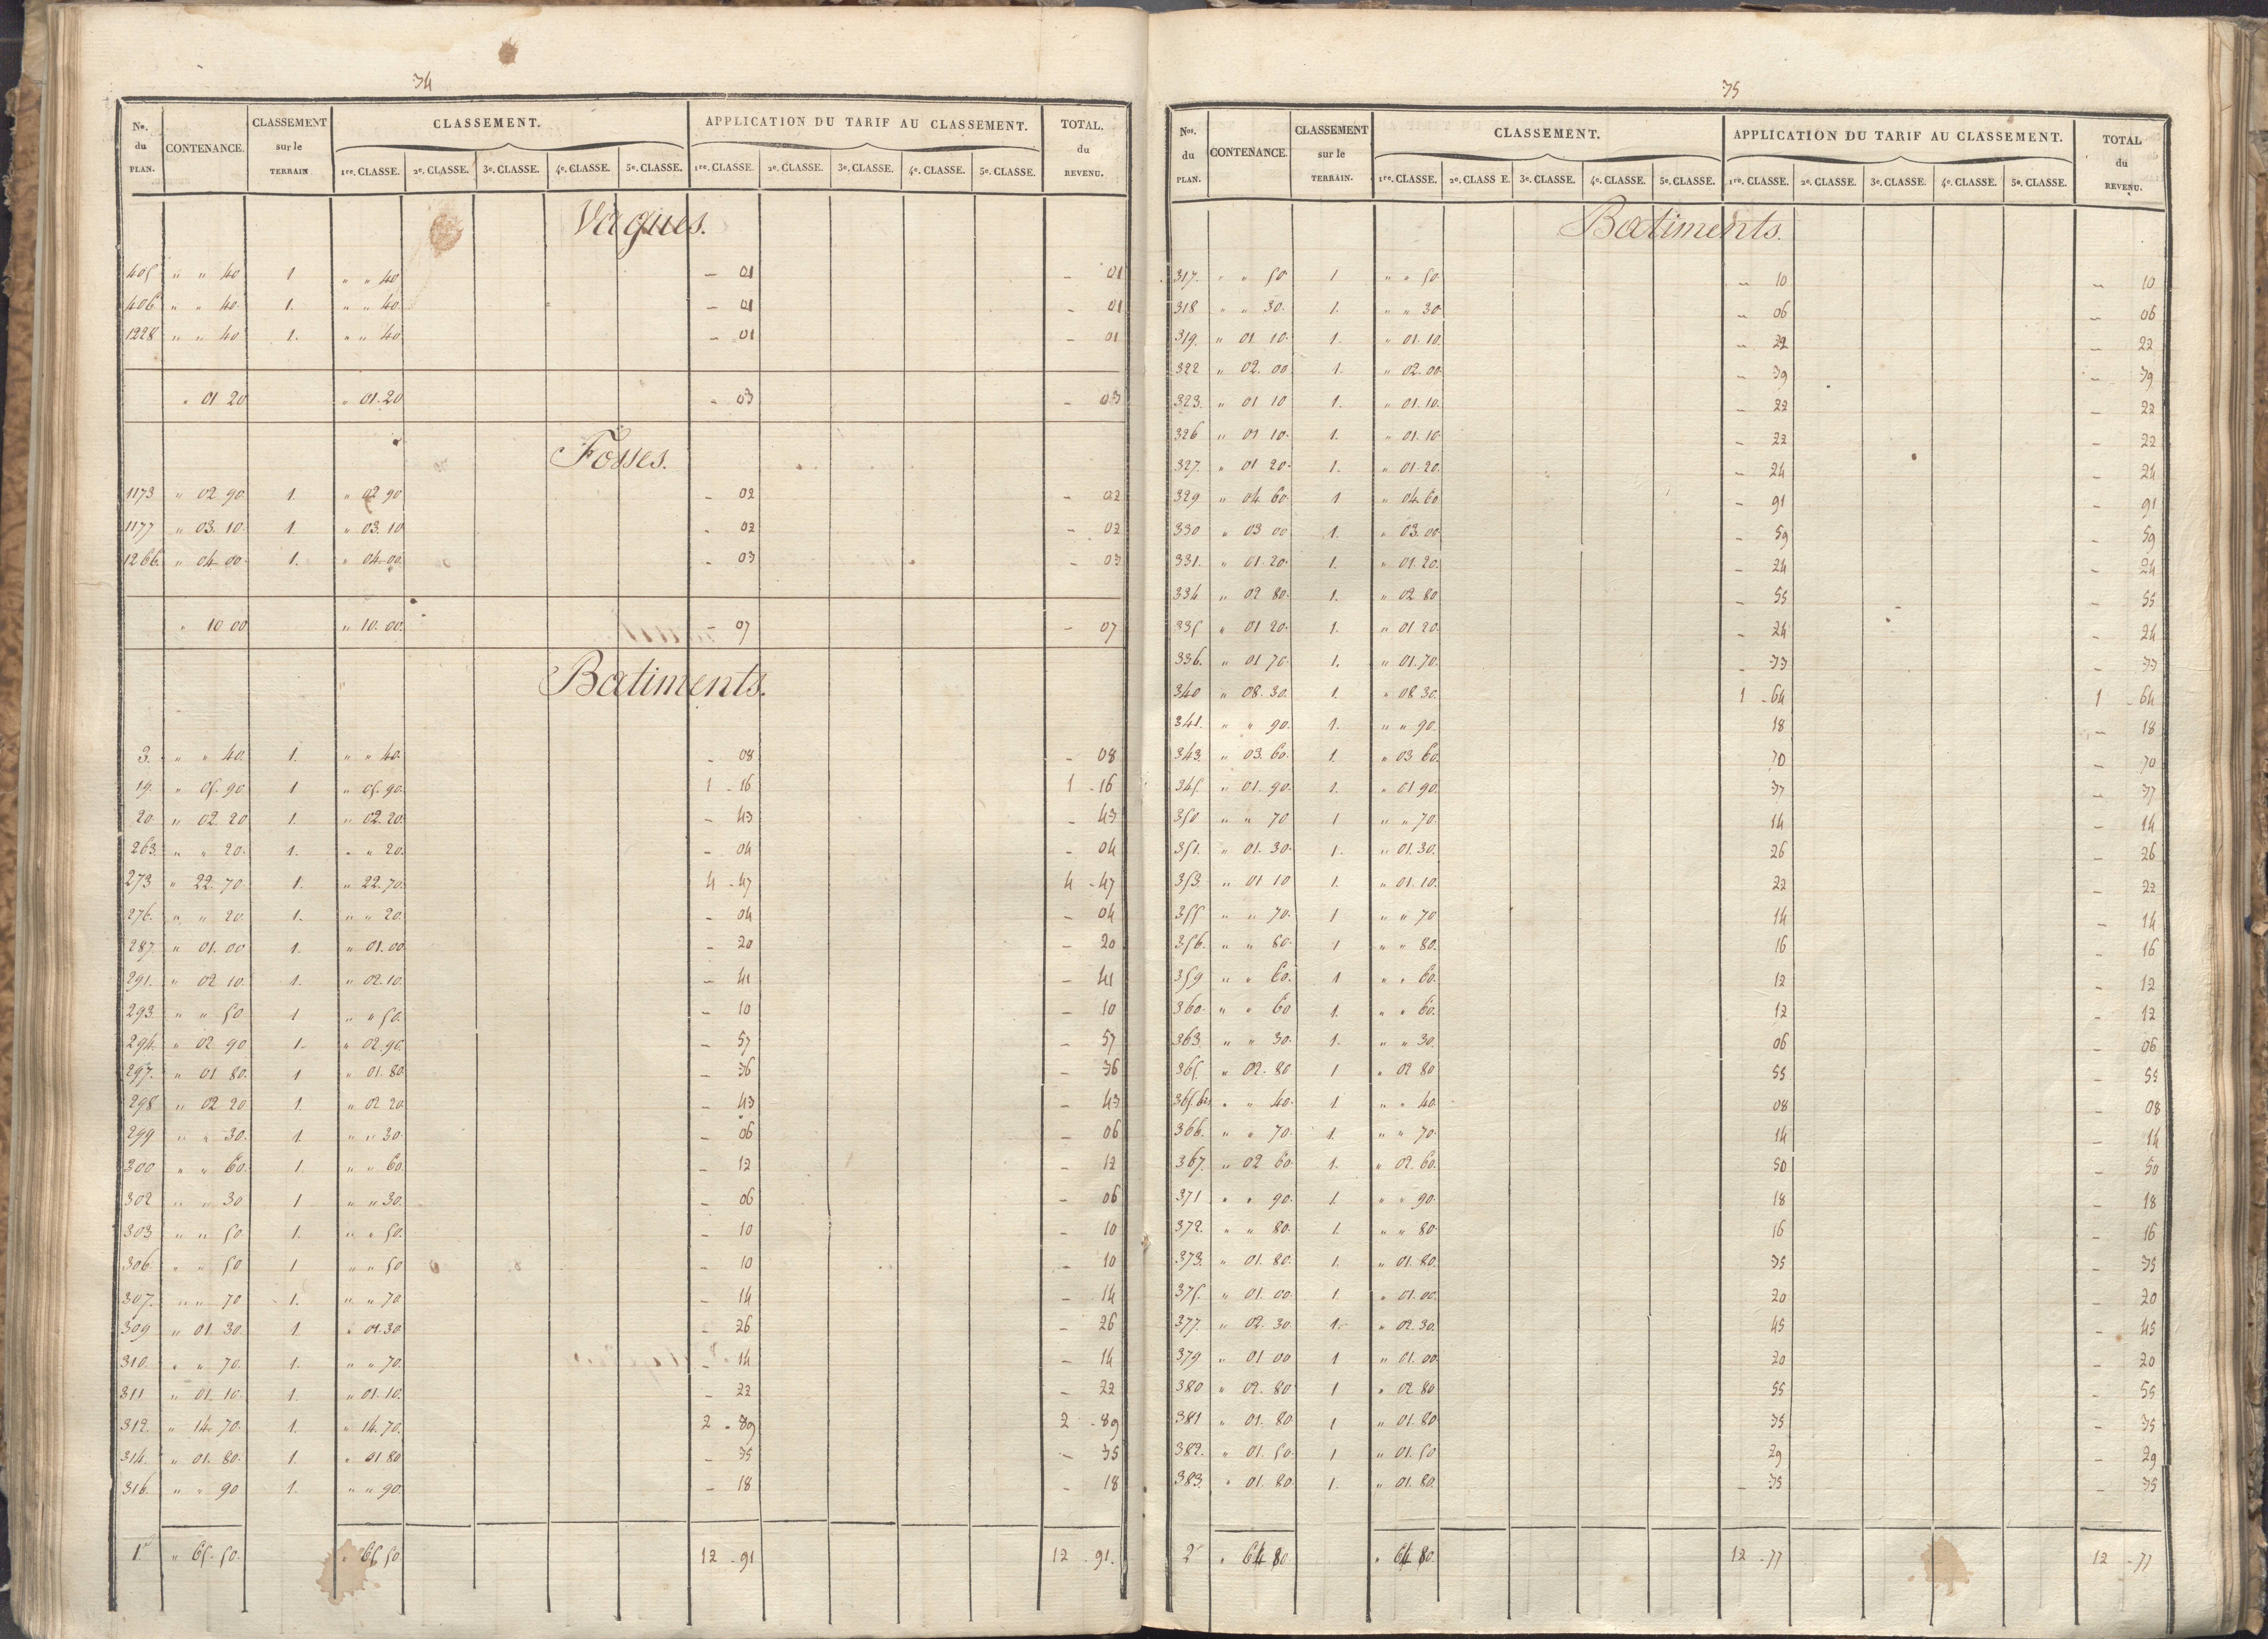 34
No. du PLAN. CONTENANCE. CLASSEMENT sur le TERRAIN CLASSEMENT. APPLICATION DU TARIF AU CLASSEMENT. TOTAL. du REVENU.
1re. CLASSE. 2e. CLASSE. 3e. CLASSE. 4e. CLASSE. 5e. CLASSE. 1re. CLASSE. 2e. CLASSE. 3e. CLASSE. 4e. CLASSE. 5e. CLASSE.
Vagues.
405 " " 40 1 " " 40 - 01 - 01
406 " " 40. 1. " " 40. - 01 - 01
1228 " " 40 1. " " 40 - 01 - 01
" 01 20 " 01.20 - 03 - 03
Fosses.
1173 " 02 90. 1. " 02 90 - 02 - 02
1177 " 03. 10. 1. " 03. 10 - 02 - 02
1266. " 04 00. 1. " 04.00. - 03 - 03
" 10 00 " 10. 00. - 07 - 07
Batiments.
3. " " 40. 1. " " 40. - 08 - 08
19. " 05. 90 1 " 05. 90. 1 - 16 1 - 16
20. " 02. 20 1. " 02. 20. - 43 - 43
263. " " 20. 1. " " 20. - 04 - 04
273 " 22. 70 1. " 22. 70. 4 - 47 4 - 47
276. " " 20 1. " " 20. - 04 - 04
287. " 01. 00 1. " 01. 00 - 20 - 20
291. " 02 10. 1. " 02. 10. - 41 - 41
293. " " 50 1 " " 50. - 10 - 10
294. " 02 90 1. " 02. 90. - 57 - 57
297. " 01 80. 1 " 01. 80. - 36 - 36
298 " 02 20 1. " 02 20 - 43 - 43
299 " " 30. 1. " " 30. - 06 - 06
300 " " 60. 1. " " 60. - 12 - 12
302 " " 30 1 " " 30. - 06 - 06
303 " " 50 1. " " 50. - 10 - 10
306 " " 50 1 " " 50 - 10 - 10
307. " " 70 1. " " 70 - 14 - 14
309 " 01. 30. 1. " 01. 30 - 26 - 26
310. " " 70. 1. " " 70. - 14 - 14
311 " 01. 10. 1. " 01. 10. - 22 - 22
312. " 14. 70. 1. " 14. 70. 2 - 89 2 - 89
314. " 01. 80. 1. " 01 80 - 35 - 35
316. " " 90 1. " " 90. - 18 - 18
1. " 65. 50. " 65 50 12 - 91 12 - 91.
35
Nos. du PLAN. CONTENANCE. CLASSEMENT sur le TERRAIN. CLASSEMENT. APPLICATION DU TARIF AU CLASSEMENT. TOTAL du REVENU.
1re. CLASSE. 2e. CLASS E. 3e. CLASSE. 4e. CLASSE. 5e. CLASSE. 1re. CLASSE. 2e. CLASSE. 3e. CLASSE. 4e. CLASSE. 5e. CLASSE.
Batiments.
317. " " 50 1 " " 50. - 10 - 10
318 " " 30. 1. " " 30 - 06 - 06
319. " 01 10. 1. " 01. 10. - 22 - 22
322 " 02. 00 1. " 02. 00. - 39 - 39
323. " 01 10 1. " 01. 10. - 22 - 22
326 " 01 10. 1. " 01. 10. - 22 - 22
327. " 01 20. 1. " 01. 20. - 24 - 24
329 " 04 60. 1 " 04. 60 - 91 - 91
330 " 03 00 1. " 03. 00 - 59 - 59
331. " 01. 20. 1. " 01. 20. - 24 - 24
334 " 02 80. 1. " 02 80 - 55 - 55
335 " 01 20. 1. " 01 20. - 24 - 24
336. " 01. 70. 1. " 01. 70. - 33 - 33
340 " 08. 30. 1. " 08 30. 1 - 64 1 - 64
341. " " 90. 1. " " 90. 18 - 18
343. " 03. 60. 1. " 03 60. 70 - 70
345. " 01. 90. 1. " 01 90. 37 - 37
350 " " 70 1 " " 70. 14 - 14
351. " 01. 30. 1. " 01. 30. 26 - 26
353. " 01 10 1. " 01. 10. 22 - 22
355 " " 70. 1 " " 70 14 - 14
356. " " 80. 1 " " 80. 16 - 16
359 " " 60. 1 " " 60. 12 - 12
360. " " 60 1. " " 60. 12 - 12
363. " " 30. 1. " " 30. 06 - 06
365. " 02. 80 1 " 02 80 55 - 55
365.bis " " 40. 1. " " 40. 08 - 08
366. " " 70. 1. " " 70. 14 - 14
367. " 02 60. 1. " 02. 60. 50 - 50
371 " " 90. 1. " " 90. 18 - 18
372. " " 80. 1. " " 80. 16 - 16
373. " 01. 80. 1. " 01. 80. 35 - 35
375. " 01. 00. 1 " 01. 00. 20 - 20
377. " 02. 30. 1. " 02. 30. 45 - 45
379 " 01 00 1 " 01. 00. 20 - 20
380 " 02. 80 1 " 02 80 55 - 55
381 " 01. 80 1 " 01. 80 35 - 35
382. " 01. 50. 1 " 01. 50 29 - 29
383. " 01. 80. 1. " 01. 80. - 35 - 35
2 " 64 80. " 64 80. 12 - 77 12 - 77